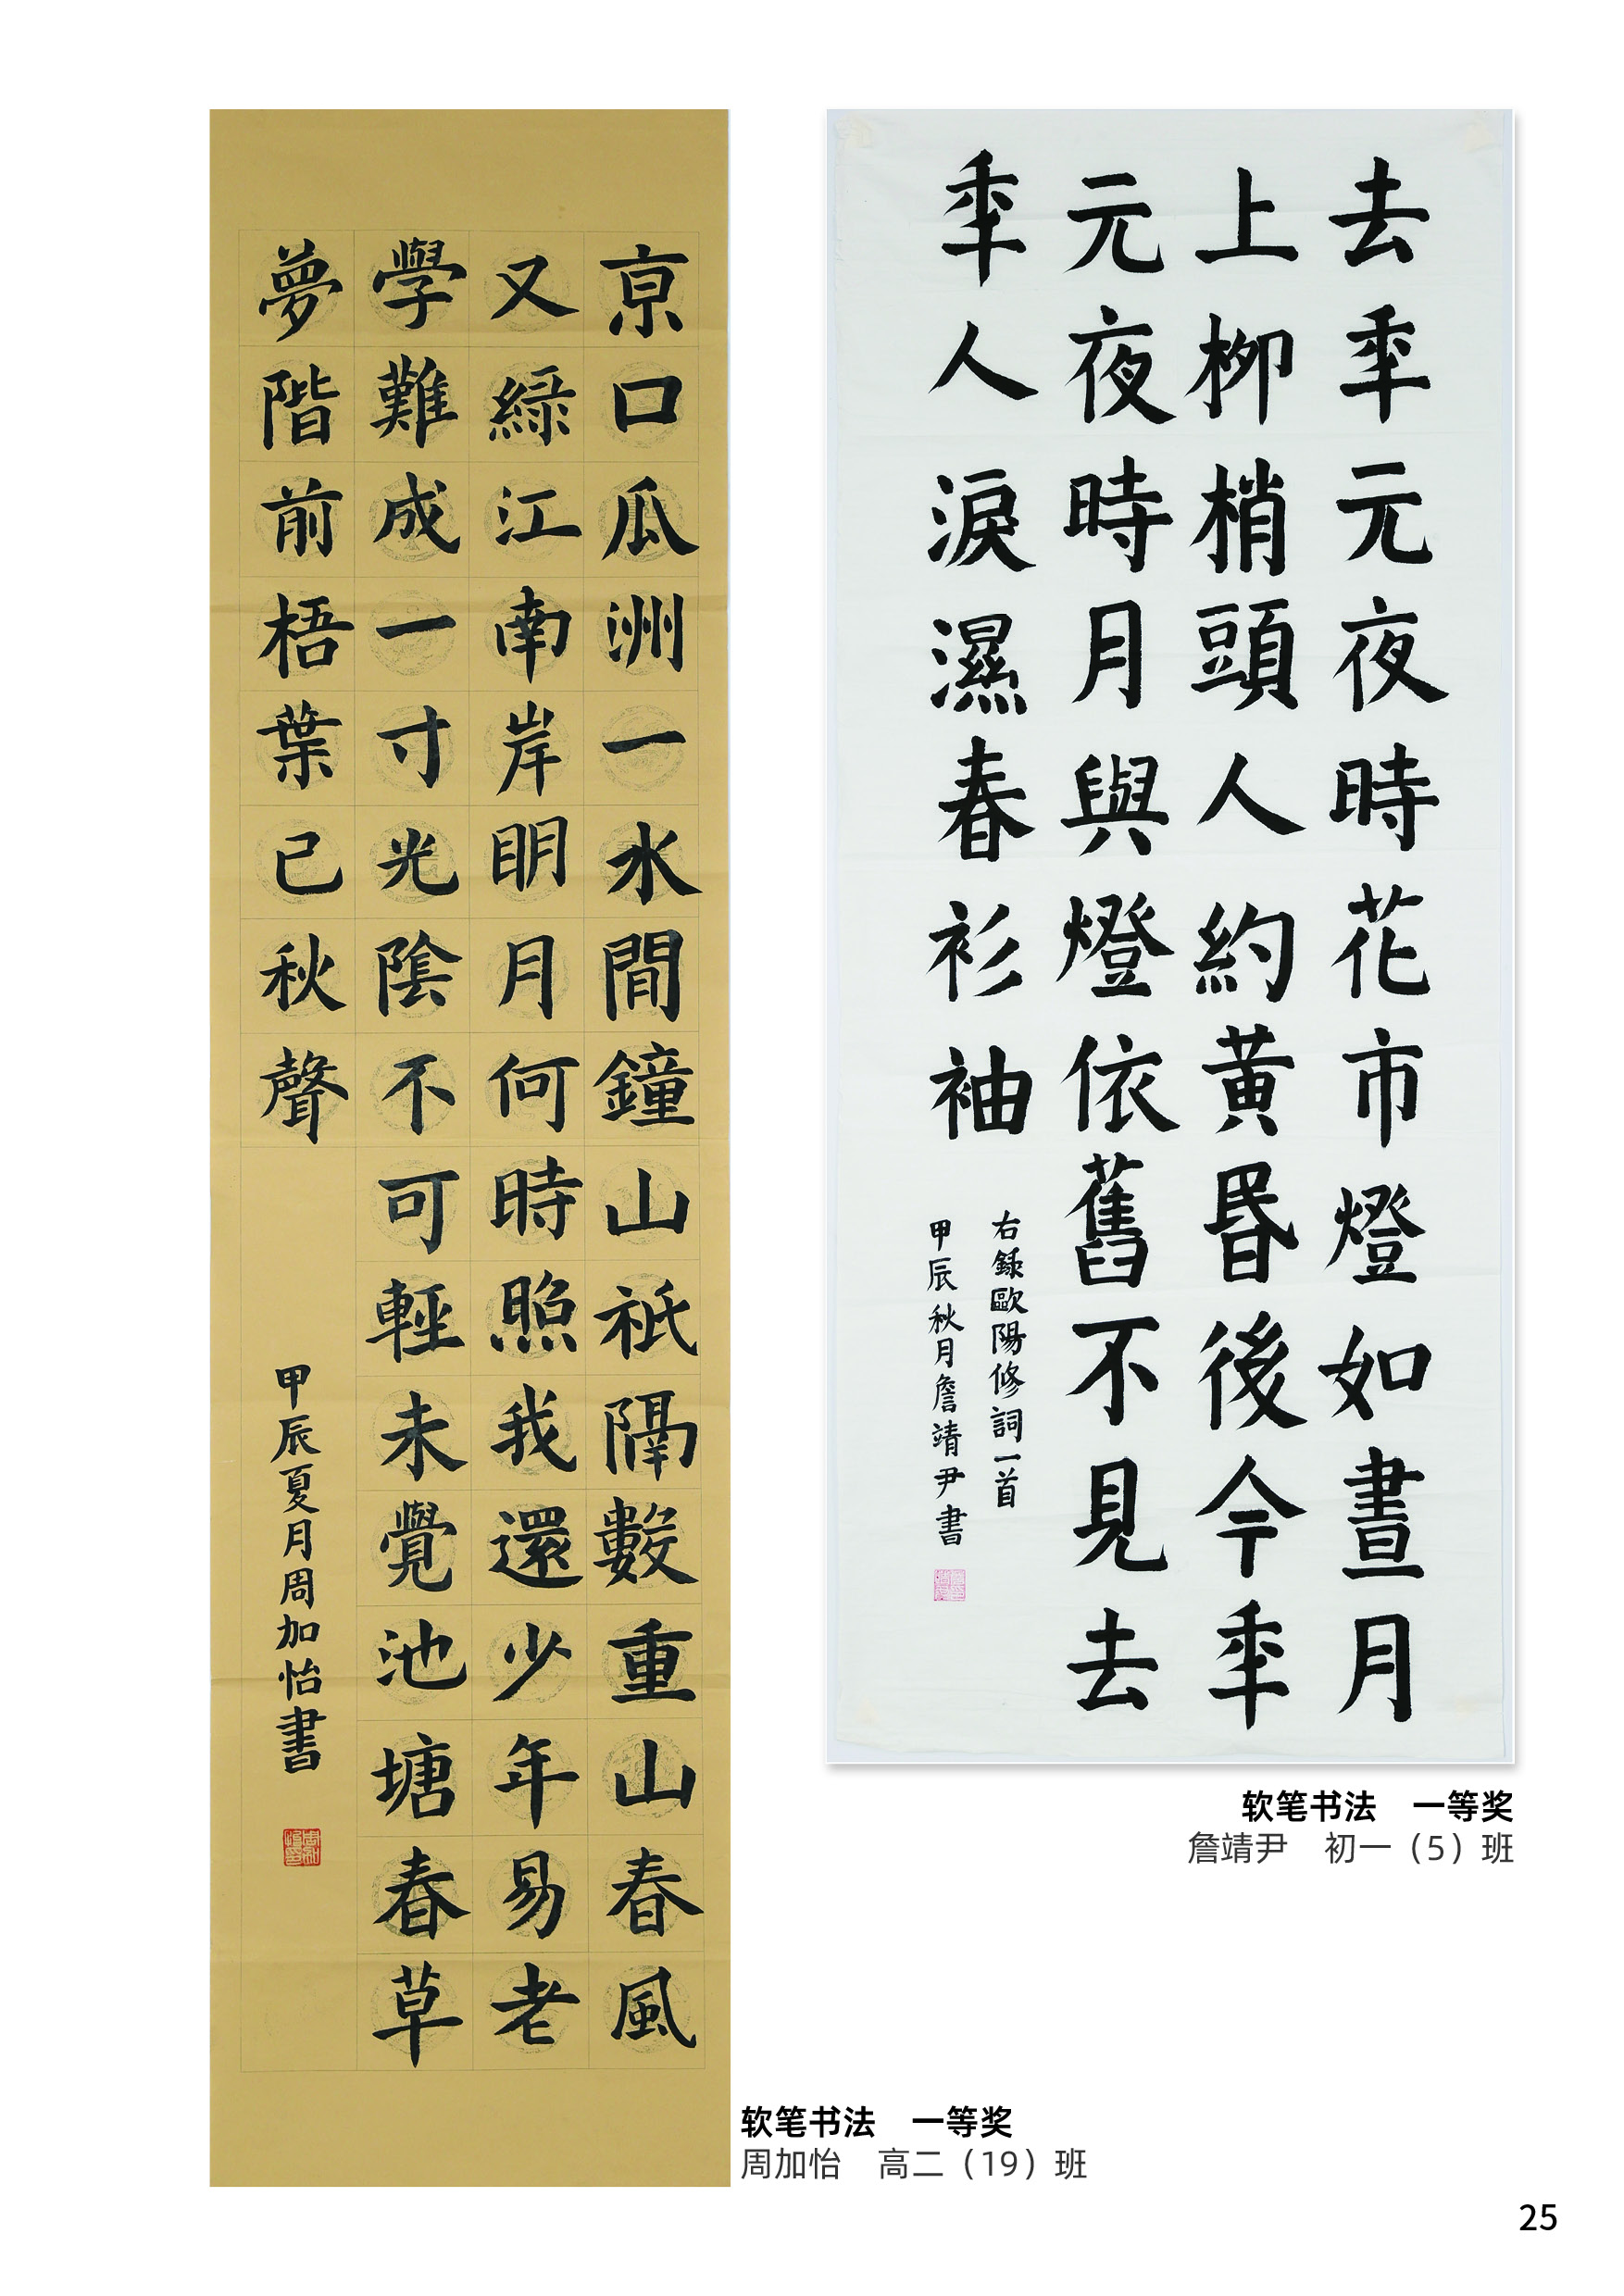 京口瓜洲一水間鐘山祇隔數重山春風
又綠江南岸明月何時照我還少年易老
學難成一寸光陰不可輕未覺池塘春草
夢階前梧葉已秋聲
甲辰夏月周加怡書
软笔书法　一等奖
周加怡　高二（19）班
去年元夜時花市燈如晝月
上柳梢頭人約黃昏後今年
元夜時月與燈依舊不見去
年人淚濕春衫袖
右錄歐陽修詞一首
甲辰秋月詹靖尹書
软笔书法　一等奖
詹靖尹　初一（5）班
25